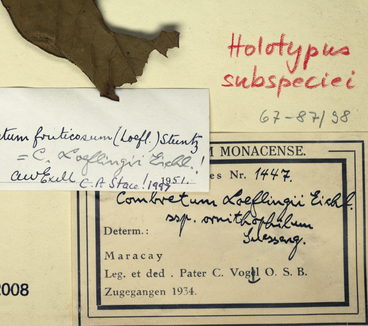 Holotypus
subspeciei
67-87/98
etum fruticosum (Loefl.) Stuntz
= C. Loeflingii Eichl.!
AWExell 1951.
C.A. Stace! 1999
M MONACENSE.
es Nr. 1447.
Combretum Loeflingii Eichl.
ssp. ornithophilum
Suesseng.
Determ.:
Maracay
Leg. et ded. Pater C. Vogl O. S. B.
Zugegangen 1934.
2008